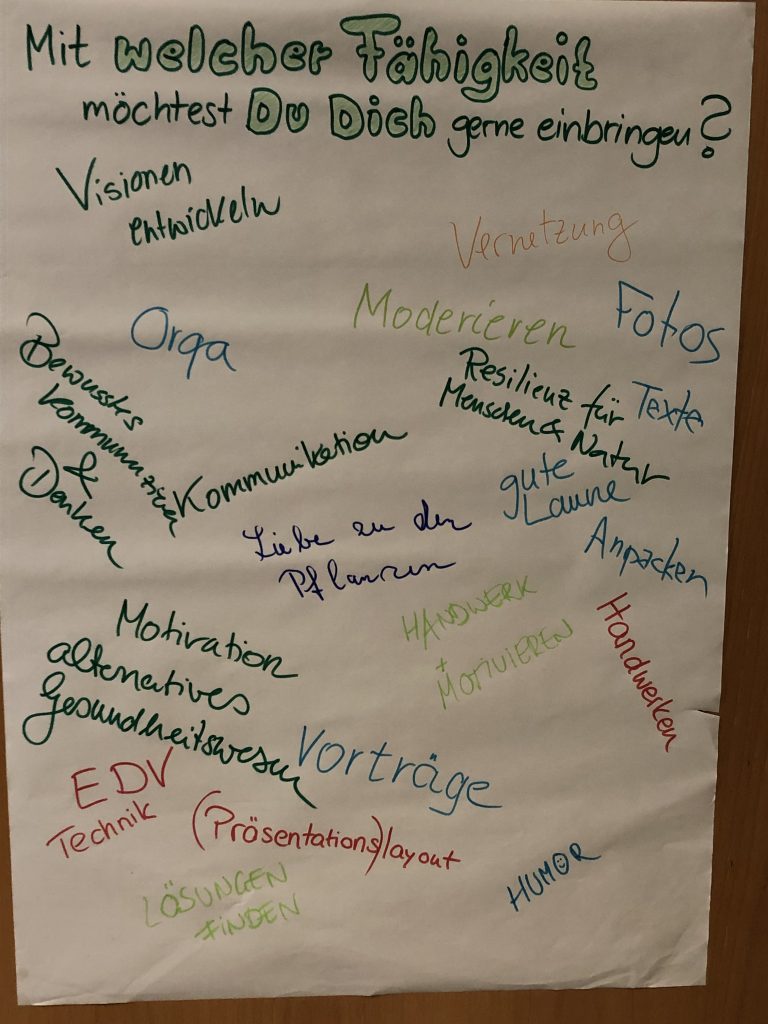 Mit welcher Fähigkeit
möchtest Du Dich gerne einbringen?
Visionen
entwickeln
Vernetzung
Orga
Moderieren
Fotos
Texte
Resilienz für
Menschen & Natur
Bewusstes
Kommunizieren
&
Denken
Kommunikation
gute
Laune
Liebe zu den
Pflanzen
Anpacken
HANDWERK
+
MOTIVIEREN
Handwerken
Motivation
alternatives
Gesundheitswesen
Vorträge
EDV
Technik
(Präsentations)layout
LÖSUNGEN
FINDEN
HUMOR